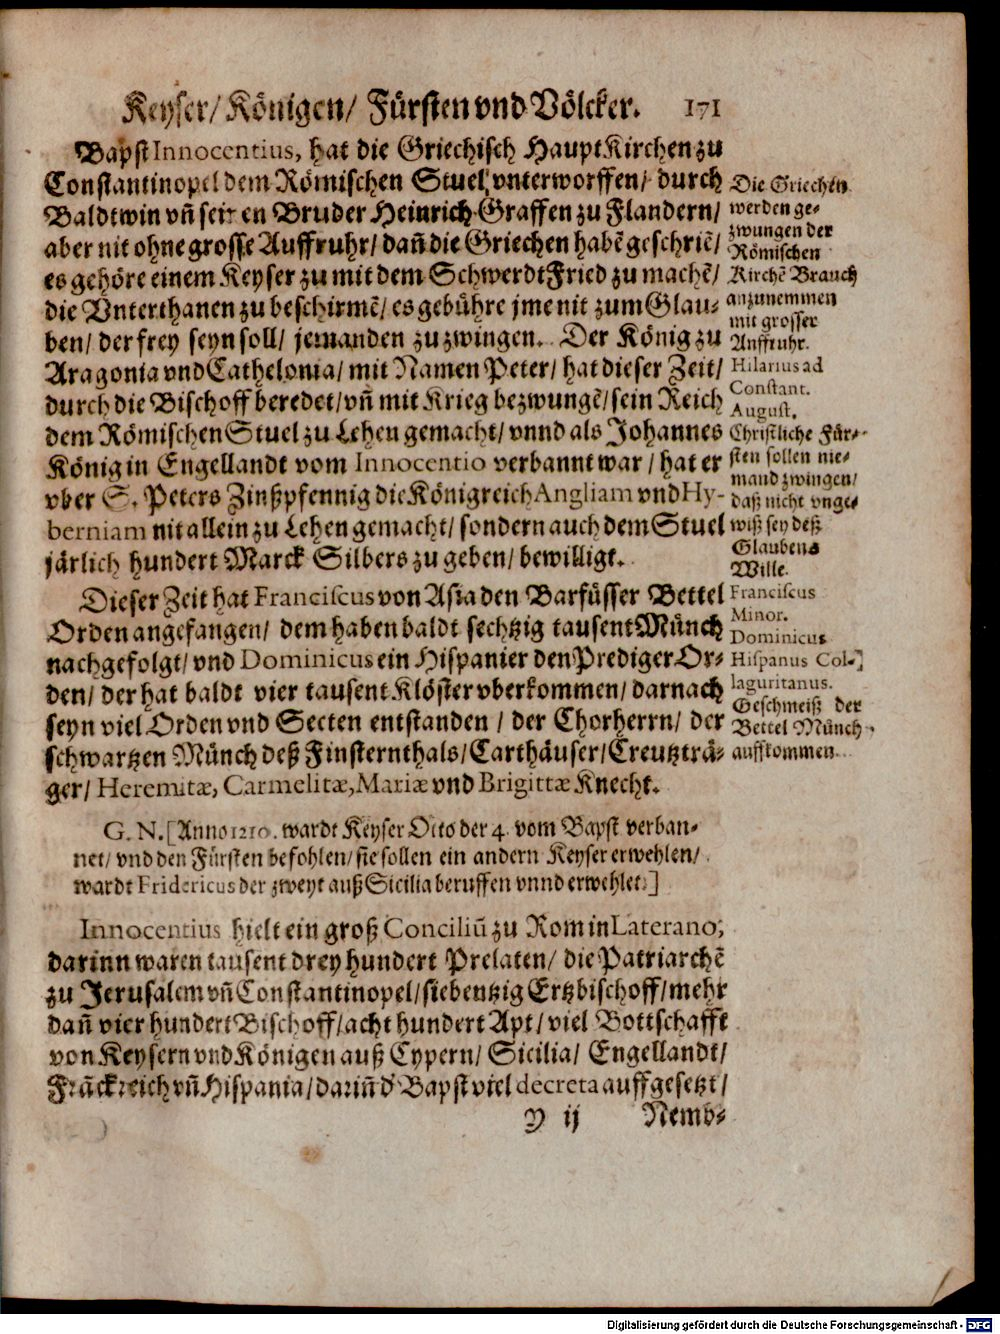 Keyser/ Königen/ Fürsten vnd Völcker. 171
Bapst Innocentius, hat die Griechisch HauptKirchen zu
Constantinopel dem Römischen Stuel vnterworffen/ durch
Baldtwin vñ seinen Bruder Heinrich Graffen zu Flandern/
aber nit ohne grosse Auffruhr/ dañ die Griechen habẽ geschriẽ/
es gehöre einem Keyser zu mit dem Schwerdt Fried zu machẽ/
die Vnterthanen zu beschirmẽ/ es gebühre jme nit zum Glau-
ben/ der frey seyn soll/ jemanden zu zwingen. Der König zu
Aragonia vnd Cathelonia/ mit Namen Peter/ hat dieser Zeit/
durch die Bischoff beredet/ vñ mit Krieg bezwungẽ/ sein Reich
dem Römischen Stuel zu Lehen gemacht/ vnnd als Johannes
König in Engellandt vom Innocentio verbannt war/ hat er
vber S. Peters Zinßpfennig die Königreich Angliam vnd Hy-
berniam nit allein zu Lehen gemacht/ sondern auch dem Stuel
järlich hundert Marck Silbers zu geben/ bewilligt.
Die Griechen
werden ge-
zwungen der
Römischen
Kirchẽ Brauch
anzunemmen
mit grosser
Auffruhr.
Hilarius ad
Constant.
August.
Christliche Für-
sten sollen nie-
mand zwingen/
daß nicht vnge-
wiß sey deß
Glaubens
Wille.
Dieser Zeit hat Franciscus von Asia den Barfüsser Bettel
Orden angefangen/ dem haben baldt sechtzig tausent Münch
nachgefolgt/ vnd Dominicus ein Hispanier den Prediger Or-
den/ der hat baldt vier tausent Klöster vberkommen/ darnach
seyn viel Orden vnd Secten entstanden/ der Chorherrn/ der
schwartzen Münch deß Finsternthals/ Carthäuser/ Creutzträ-
ger/ Heremitæ, Carmelitæ, Mariæ vnd Brigittæ Knecht.
Franciscus
Minor.
Dominicus
Hispanus Col-]
laguritanus.
Geschmeiß der
Bettel Münch
auffkommen.
G. N. [Anno 1210. wardt Keyser Otto der 4. vom Bapst verban-
net/ vnd den Fürsten befohlen/ sie sollen ein andern Keyser erwehlen/
wardt Fridericus der zweyt auß Sicilia beruffen vnnd erwehlet.]
Innocentius hielt ein groß Conciliũ zu Rom in Laterano,
darinn waren tausent drey hundert Prelaten/ die Patriarchẽ
zu Jerusalem vñ Constantinopel/ siebentzig Ertzbischoff/ mehr
dañ vier hundert Bischoff/ acht hundert Apt/ viel Bottschafft
von Keysern vnd Königen auß Cypern/ Sicilia/ Engellandt/
Frãckreich vñ Hispania/ dariñ d' Bapst viel decreta auffgesetzt/
Y ij Nemb-
Digitalisierung gefördert durch die Deutsche Forschungsgemeinschaft - DFG